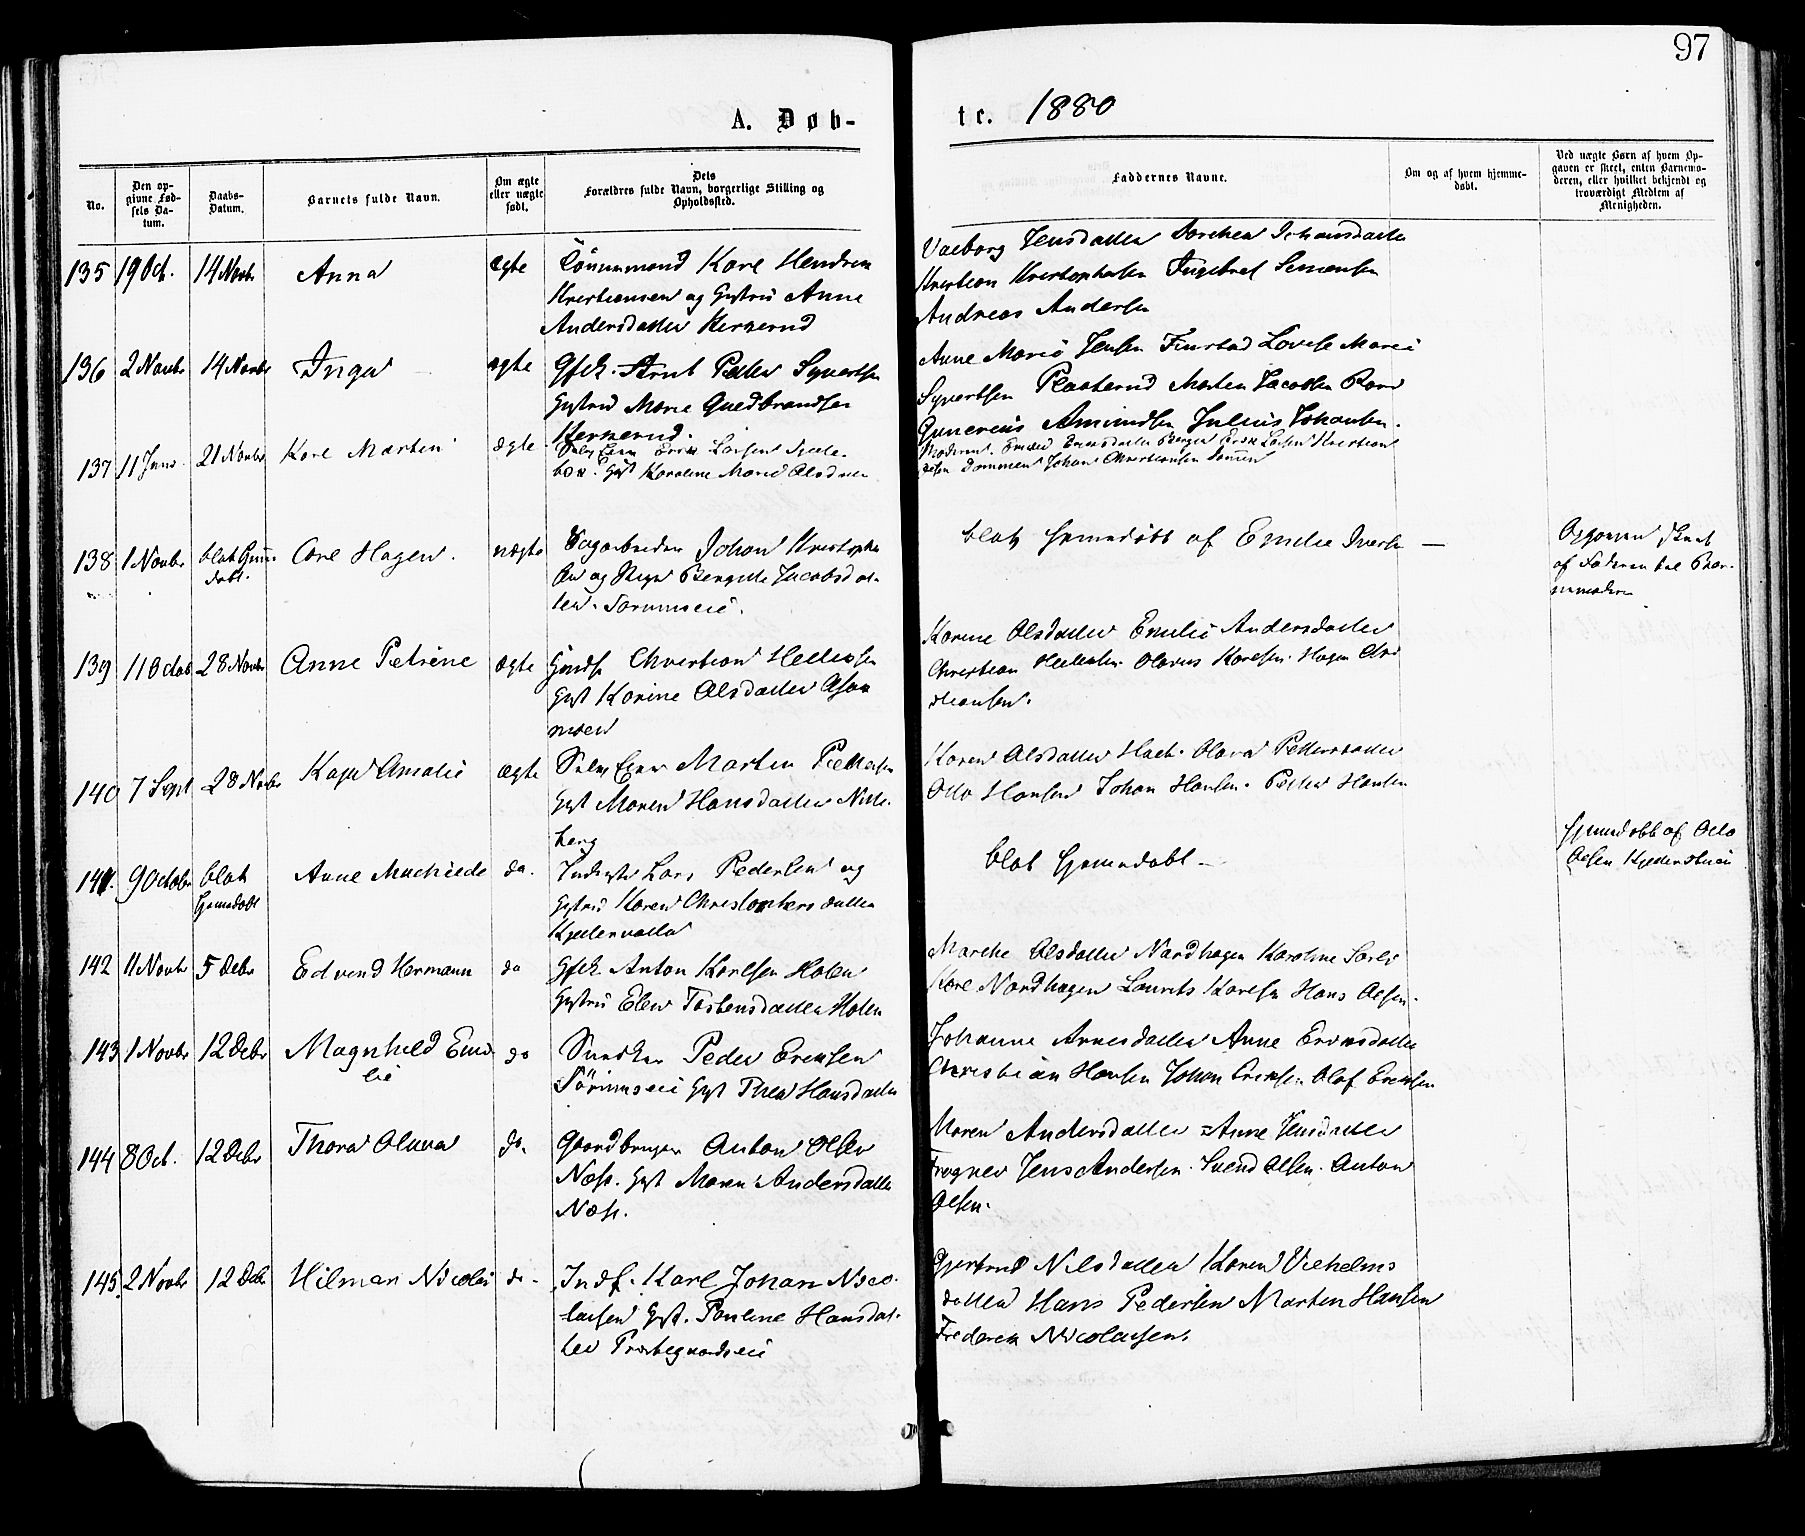 97
A. Døb-
te. 1880
No.
Den op-
givne Fød-
sels Da-
tum.
Daabs-
Datum.
Barnets fulde Navn.
Om ægte
eller uægte
født.
Dets
Forældres fulde Navn, borgerlige Stilling og
Opholdssted.
Faddernes Navne.
Om og af hvem hjemme-
døbt.
Ved uægte Børn af hvem Op-
gaven er skeet, enten Barnemo-
deren, eller hvilket bekjendt og
troværdigt Medlem af
Menigheden.
135 19 Oct. 14 Novbr Anna ægte Tömmermand Karl Hendrik
Kristiansen og Gustru Anne
Andersdatter
Valborg Jensdatter Dorthea Johansdatter
Kristian Kristophersen Ingebret Simensen
Andreas Andersen
136 2 Novbr 14 Novbr Inga ægte Arnt Petter Syvertsen
Gustru Marie Guldbrandsen
Anne Marie Jensen Finstad Lovise Marie
Syvertsen Morten Jacobsen
Gunerius Amundsen Julius Johansen.
137 11 Juni 21 Novbr Karl Martin ægte Selv Eier Erik Larsen
Gust Karoline Marie Olsdatter
Moderen. Erik Larsen Kristian
Johan Christiansen
138 1 Novbr blot Hjemmedöbt. Carl Hagen. uægte Sagarbeider Johan Kristopher-
sen og Pige Bergitte Jacobsdat-
ter. Sörumseie.
blot hjemmedöbt af Emilie Iversen —
Opgaven skeet
af Faderen hel Bar-
nemoderen
139 11 Octob 28 Novbr Anne Petrine ægte Christian Hellesen
Gust Karine Olsdatter Aasen
moen
Karine Olsdatter Emilie Andersdatter
Christian Hellesen. Olavus Karlsen. Hagen Chri
stiansen.
140 7 Sept 28 Novbr Kaja Amalie ægte Selv Eier Martin Pettersen
Gust Maren Hansdatter Nitte-
berg
Karen Olsdatter Olava Pettersdatter
Otto Hansen Johan Hansen. Petter Hansen
141. 9 Octobr blot
Hjemmedöbt Anne Mathilde do. Inderst Lars Pedersen og
Gustru Karen Christophersdatter
blot Hjemmedöbt —
Hjemmedöbt af Ole
Olsen
142 11 Novbr 5 Debr Edvend Hermann do Anton Karlsen Holen
Gustru Elen Torstensdatter Holen
Marthe Olsdatter Nordhagen Karoline
Karl Nordhagen Laurits Karlsen Hans Olsen.
143 1 Novbr 12 Debr Magnhild Emi
lie do Snedker Peder Eriksen
Sörumseie Gust Thea Hansdatter
Johanne Arnesdatter Anne Eriksdatter
Christian Hansen Johan Eriksen Olaf Eriksen
144 8 Oct. 12 Debr Thora Oluva do. Gaardbruger Anton Olsen
Næss. Gust Maren Andersdatter
Næss.
Maren Andersdatter Anne Jensdatter
Frogner Jens Andersen. Svend Olsen. Anton
Olsen.
145. 2 Novbr 12 Debr Hilmar Nicolai do- Indf. Karl Johan Nico-
laisen Gust. Pauline Hansdat-
ter Præstegaardseie
Gjertrud Nilsdatter Karen Vilhelms
datter Hans Pedersen Martin Hansen
Frederik Nicolaisen.